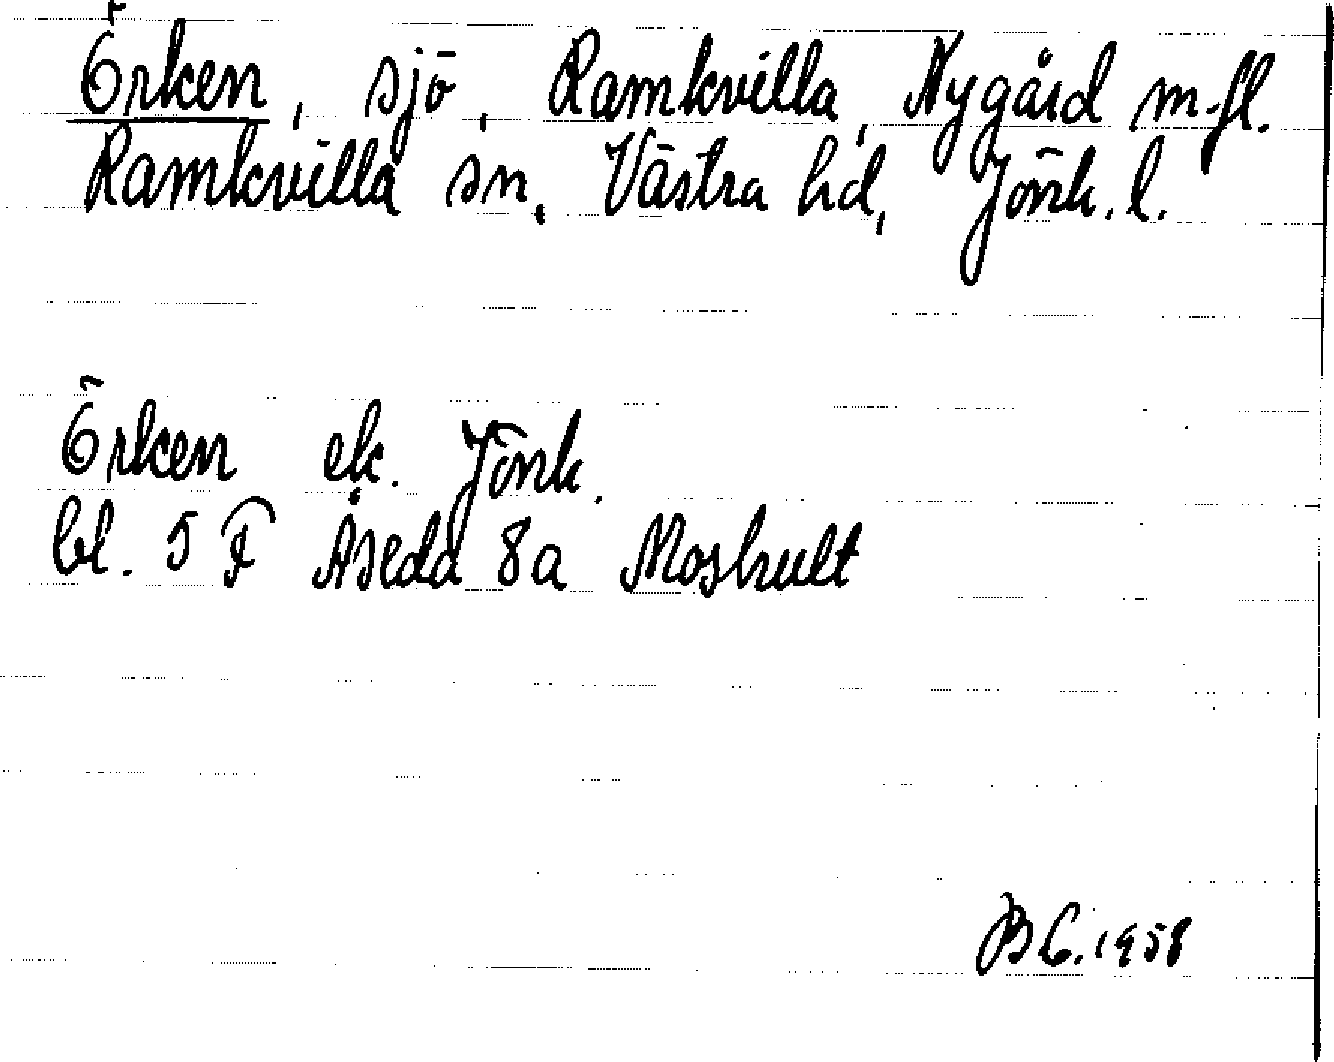 Örken, sjö, Ramkvilla, Nygård m.fl.
Ramkvilla sn, Västra hd, Jönk. l.
Örken ek. Jönk.
bl. 5 F Åseda 8a Moshult
B C. 1958